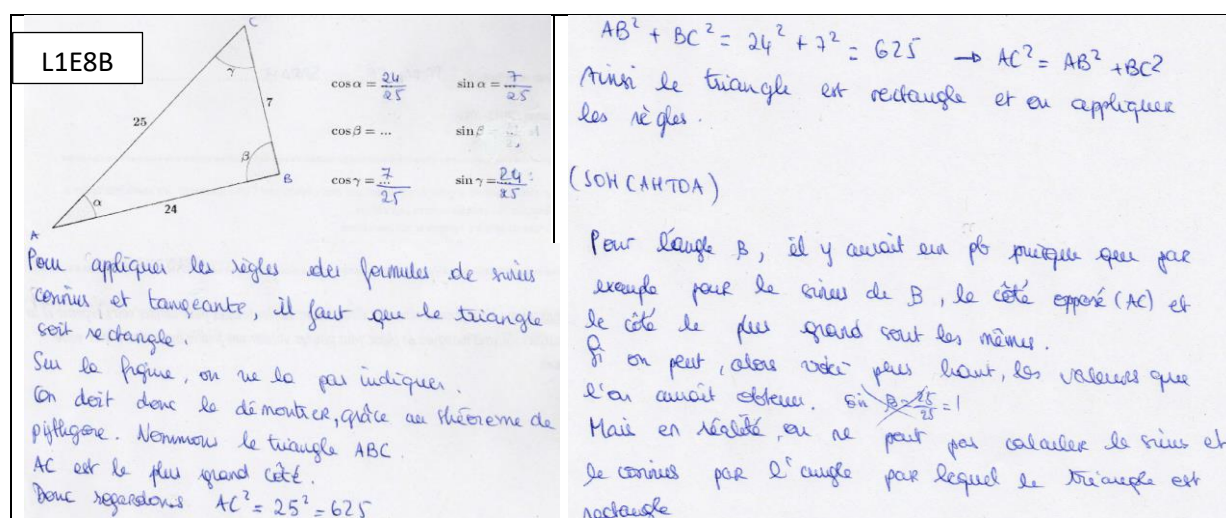 L1E8B
C
γ
7
25
β
B
α
24
A
cos α = 24/25 sin α = 7/25
cos β = ... sin β
cos γ = 7/25 sin γ = 24/25
Pour appliquer les règles des formules de sinus
cosinus et tangeante, il faut que le triangle
soit rectangle.
Sur la figure, on ne la pas indiquer.
On doit donc le démontrer, grâce au théoreme de
pythagore. Nommons le triangle ABC.
AC est le plus grand côté.
Donc regardons AC² = 25² = 625
AB² + BC² = 24² + 7² = 625 → AC² = AB² + BC²
Ainsi le triangle est rectangle et on appliquer
les règles.
(SOH CAHTOA)
Pour l'angle B, il y aurait un pb puisque que par
exemple pour le sinus de B, le côté opposé (AC) et
le côté le plus grand sont les mêmes.
Si on peut, alors voici plus haut, les valeurs que
l'on aurait obtenu. sin B = 25/25 = 1
Mais en réalité, on ne peut pas calculer le sinus et
le cosinus par l'angle par lequel le triangle est
rectangle